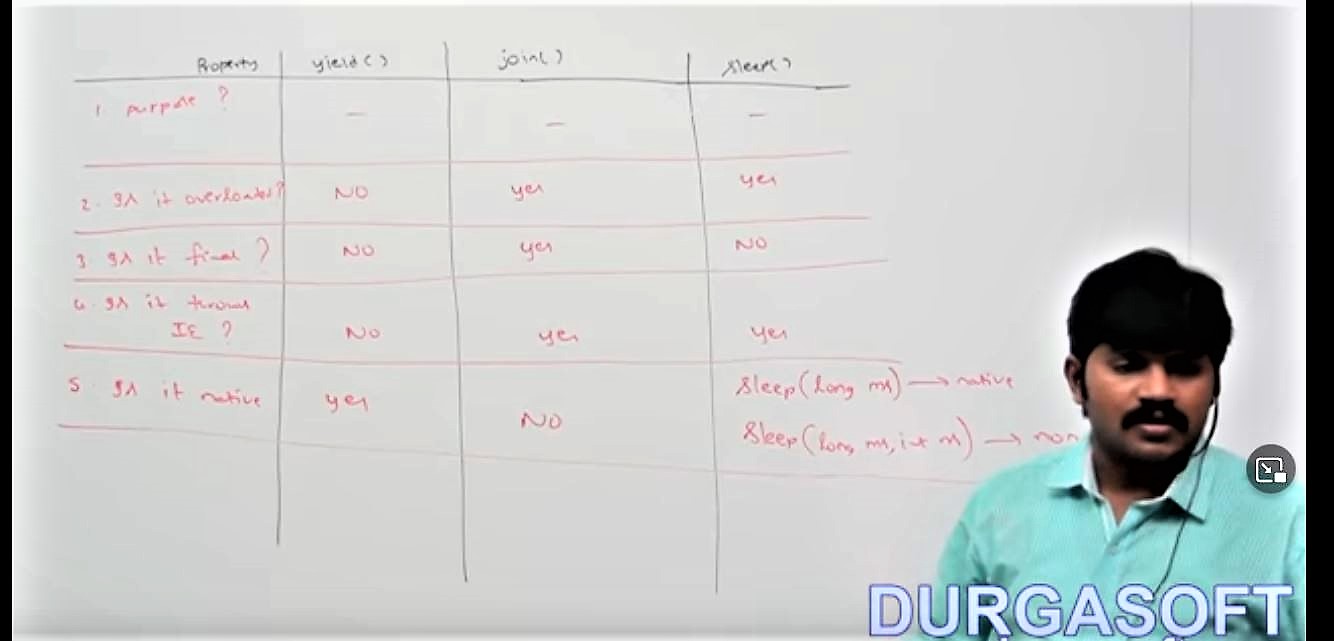 Property yield() join() sleep()
1. purpose ? — — —
2. Is it overloaded? NO yes yes
3 Is it final ? NO yes NO
4. Is it throws
IE ? NO yes yes
5. Is it native yes NO sleep(long ms) → native
sleep(long ms, int ns) → non
DURGASOFT